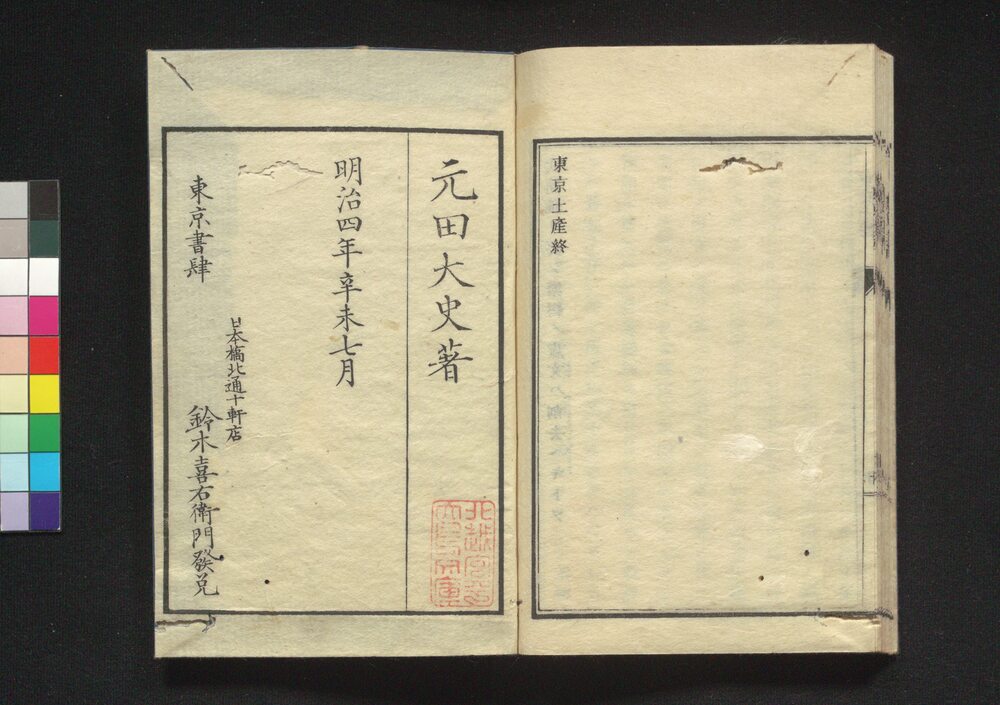 東京土産終
元田大史著
明治四年辛未七月
日本橋北通十軒店
東京書肆 鈴木喜右衛門發兌